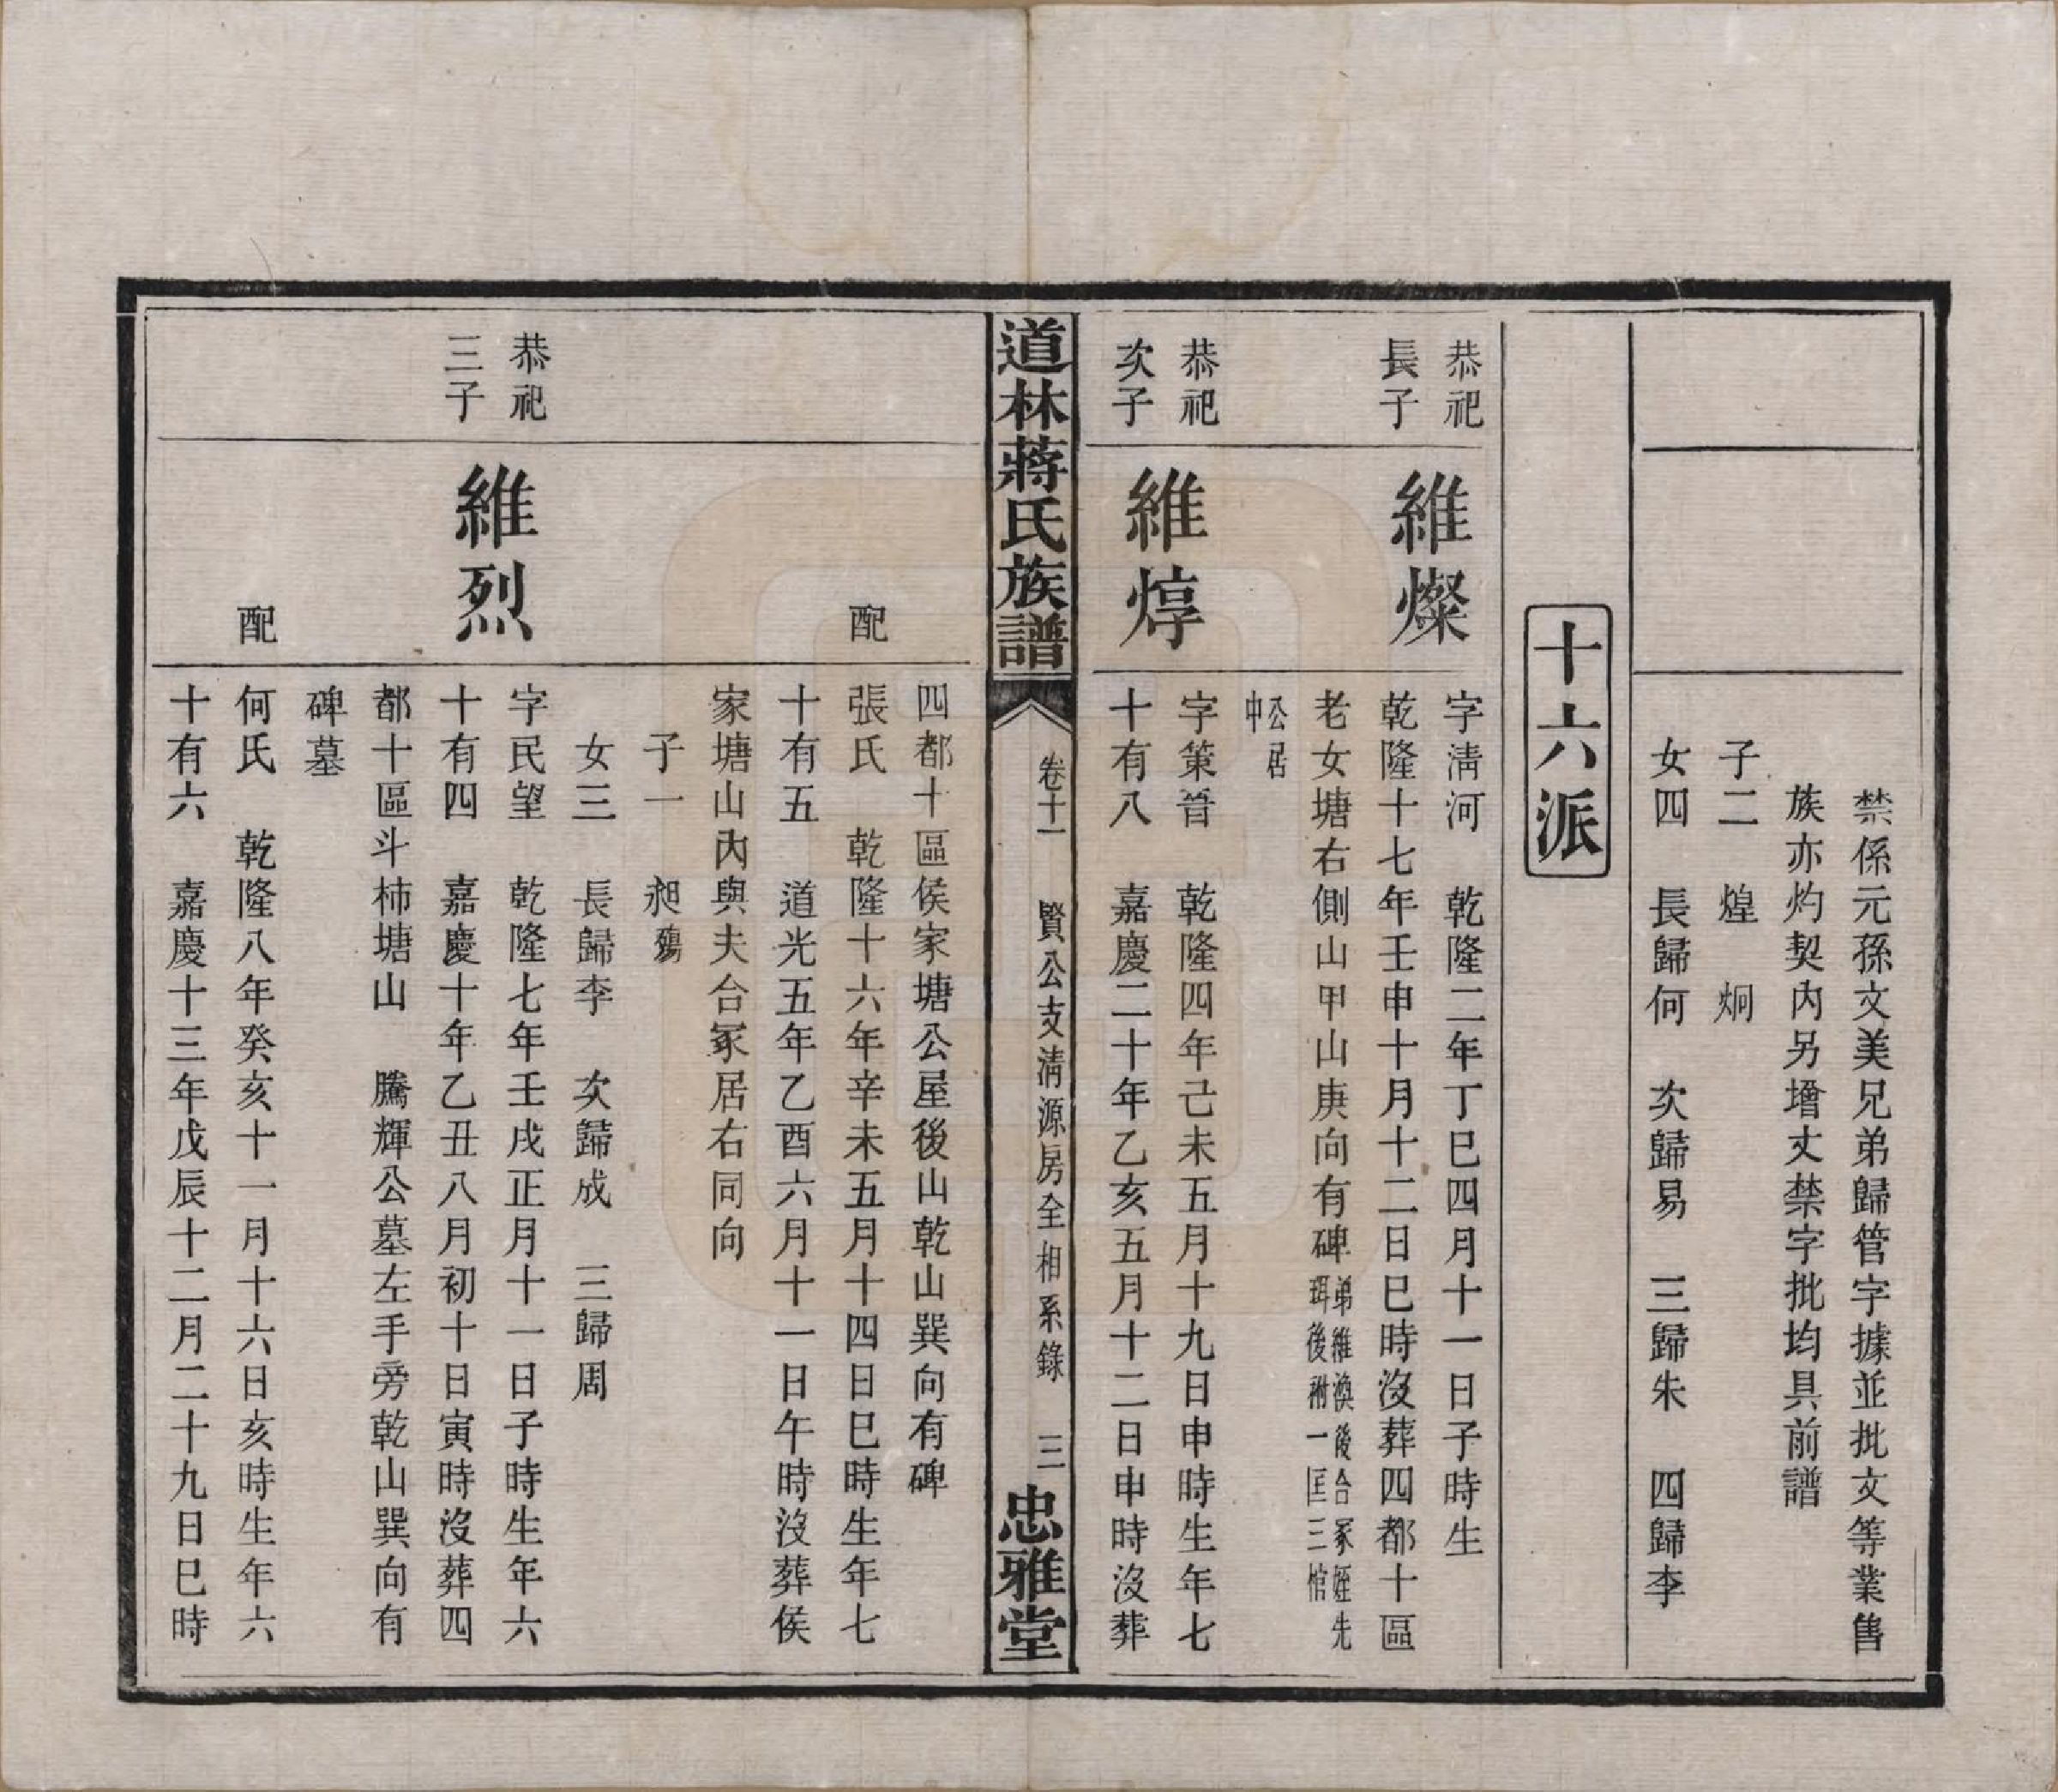 禁係元孫文美兄弟歸管字據並批文等業售
族亦灼契內另增丈禁字批均具前譜
子二　煌　炯
女四　長歸何　次歸易　三歸朱　四歸李
十六派
恭祀
長子
維燦
字清河　乾隆二年丁巳四月十一日子時生
乾隆十七年壬申十月十二日巳時沒葬四都十區
老女塘右側山甲山庚向有碑弟維渙後合冢姪先
珥後祔一匡三棺
公居
中
恭祀
次子
維焞
字策晉　乾隆四年己未五月十九日申時生年七
十有八　嘉慶二十年乙亥五月十二日申時沒葬
道林蔣氏族譜　卷十一　賢公支清源房全相系錄　三　忠雅堂
四都十區侯家塘公屋後山乾山巽向有碑
配　張氏　乾隆十六年辛未五月十四日巳時生年七
十有五　道光五年乙酉六月十一日午時沒葬侯
家塘山內與夫合冢居右同向
子一　昶
女三　長歸李　次歸成　三歸周
恭祀
三子
維烈
字民望　乾隆七年壬戌正月十一日子時生年六
十有四　嘉慶十年乙丑八月初十日寅時沒葬四
都十區斗柿塘山　騰輝公墓左手旁乾山巽向有
碑墓
配　何氏　乾隆八年癸亥十一月十六日亥時生年六
十有六　嘉慶十三年戊辰十二月二十九日巳時